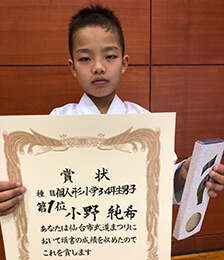 賞状
種目 個人形小学3.4年生男子
第1位 小野 純希
あなたは仙台市武道まつりに
おいて頭書の成績を収めたので
これを賞します